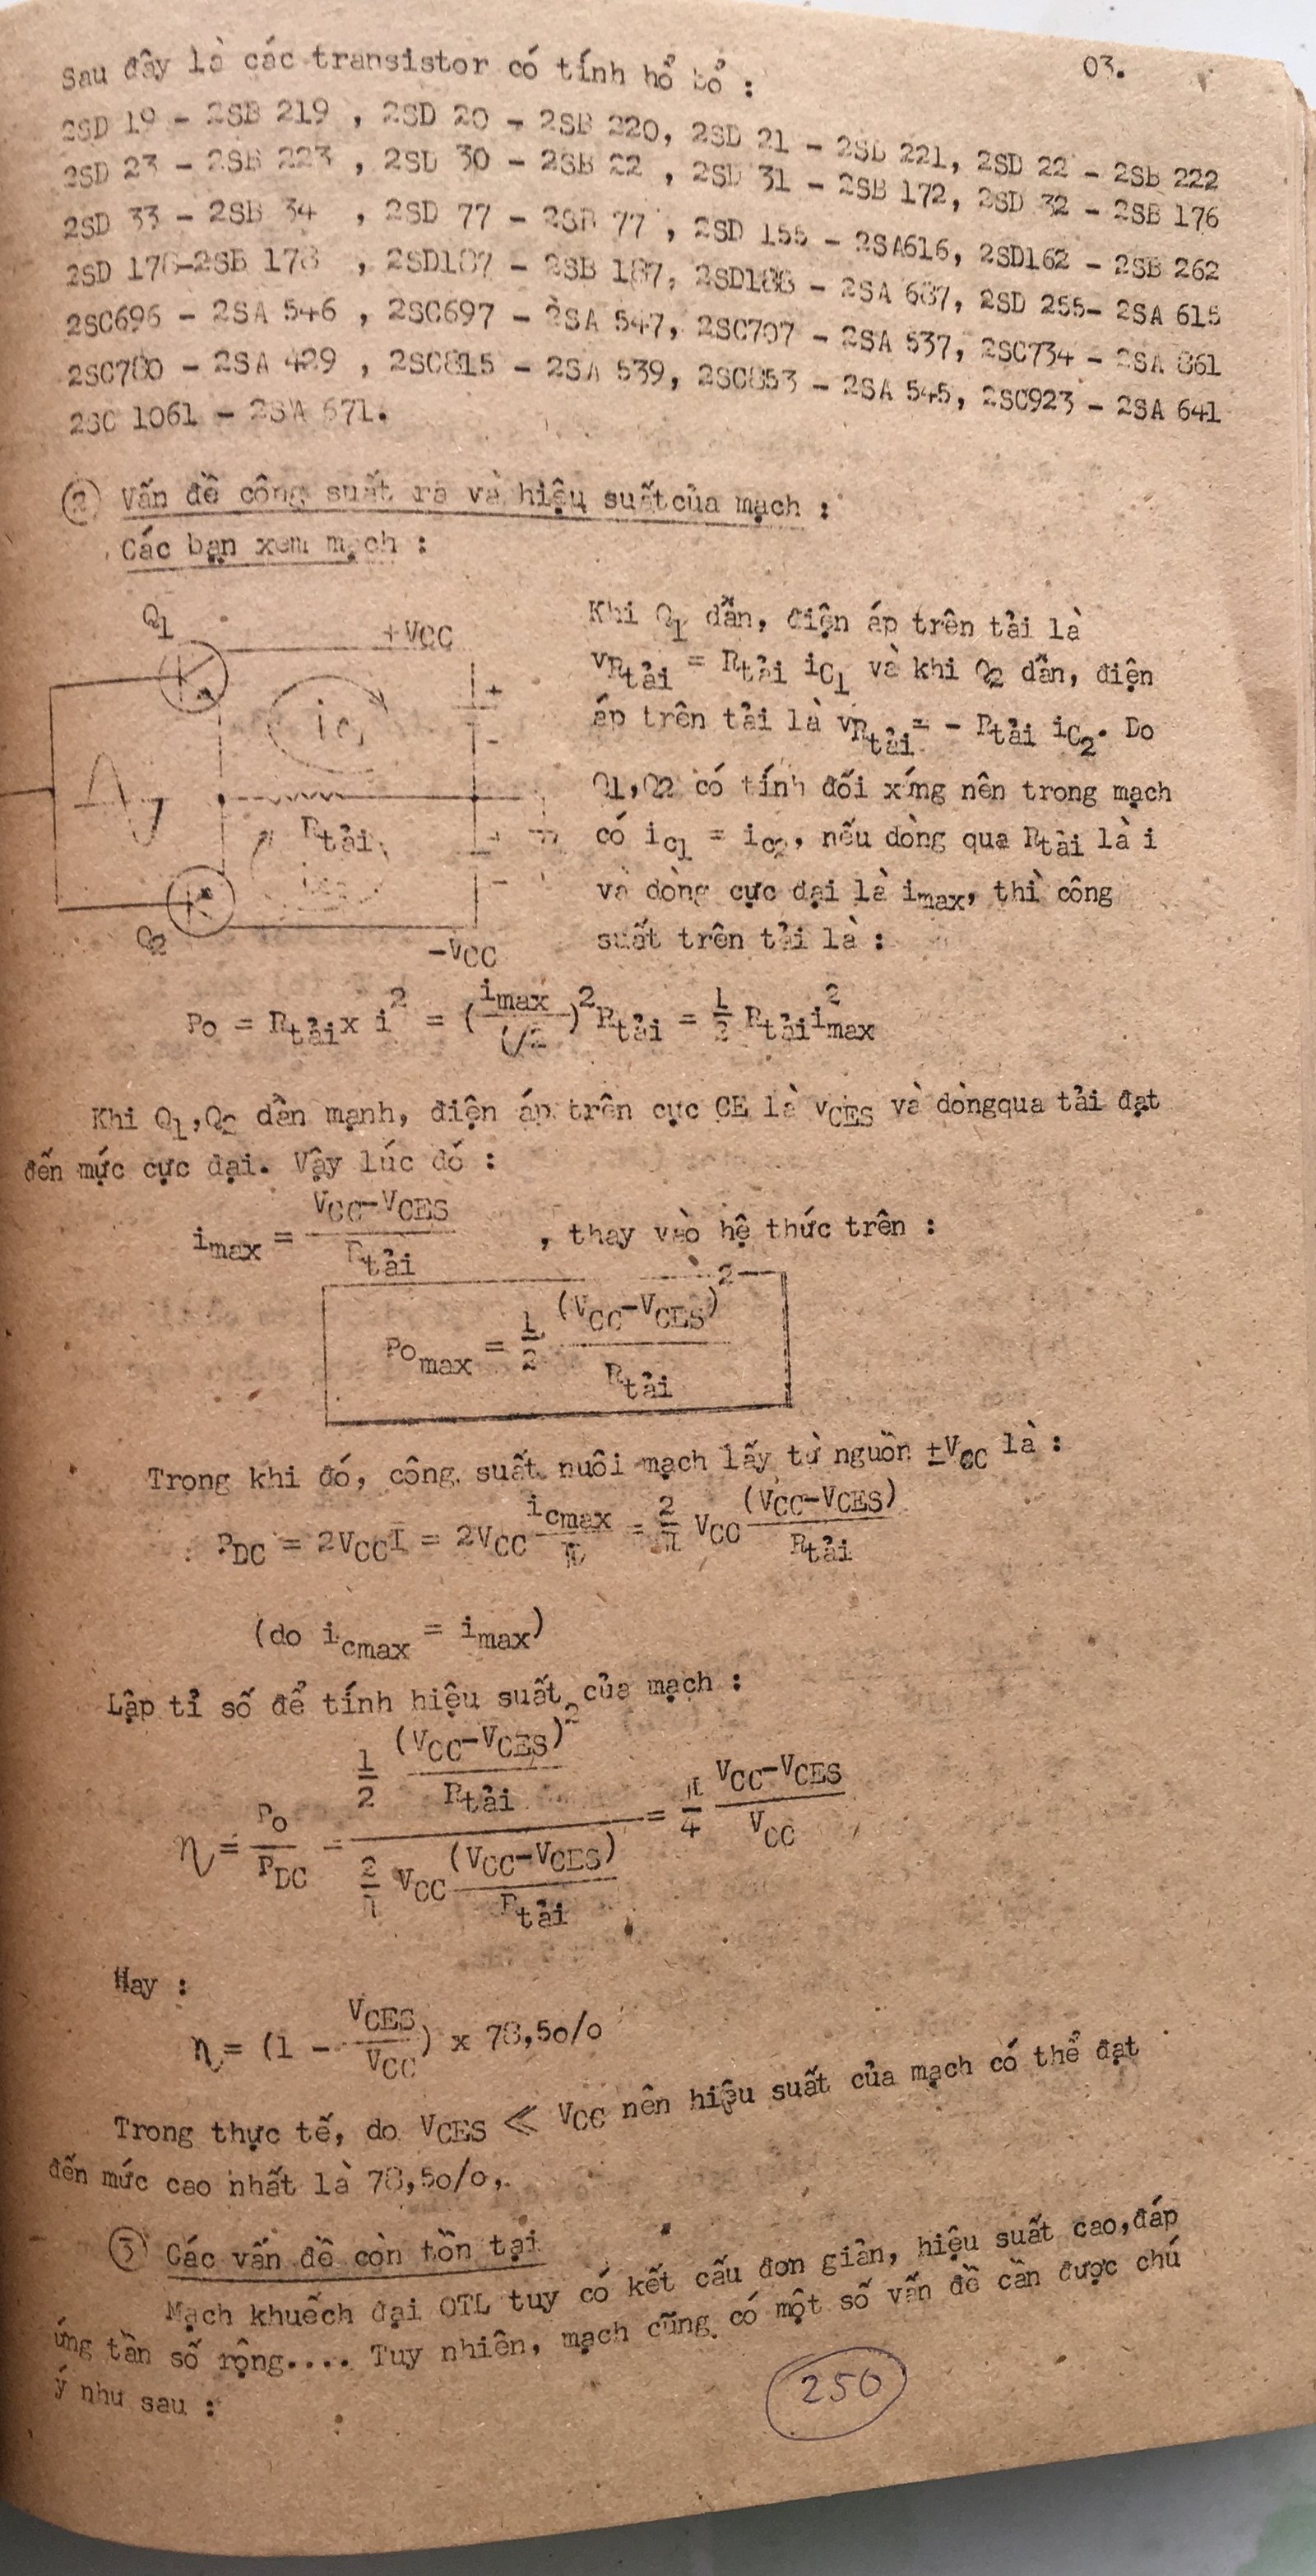 03.
Sau đây là các transistor có tính hổ bổ :
2SD 19 - 2SB 219 , 2SD 20 - 2SB 220, 2SD 21 - 2SB 221, 2SD 22 - 2SB 222
2SD 23 - 2SB 223 , 2SD 30 - 2SB 22 , 2SD 31 - 2SB 172, 2SD 32 - 2SB 176
2SD 33 - 2SB 34 , 2SD 77 - 2SB 77 , 2SD 155 - 2SA616, 2SD162 - 2SB 262
2SD 178-2SB 178 , 2SD187 - 2SB 187, 2SD188 - 2SA 687, 2SD 255- 2SA 615
2SC696 - 2SA 546 , 2SC697 - 2SA 547, 2SC707 - 2SA 537, 2SC734 - 2SA 861
2SC780 - 2SA 429 , 2SC815 - 2SA 539, 2SC853 - 2SA 545, 2SC923 - 2SA 641
2SC 1061 - 2SA 671.
② Vấn đề công suất ra và hiệu suất của mạch :
Các bạn xem mạch :
Q1
+VCC
iC1
Rtải
Q2
-VCC
Khi Q1 dẫn, điện áp trên tải là
vRtải = Rtải iC1 và khi Q2 dẫn, điện
áp trên tải là vRtải = - Rtải iC2. Do
Q1,Q2 có tính đối xứng nên trong mạch
có iC1 = iC2, nếu dòng qua Rtải là i
và dòng cực đại là imax, thì công
suất trên tải là :
Po = Rtải x i² = (imax/√2)² Rtải = 1/2 Rtải i²max
Khi Q1,Q2 dẫn mạnh, điện áp trên cực CE là vCES và dòngqua tải đạt
đến mức cực đại. Vậy lúc đó :
imax = VCC-VCES / Rtải , thay vào hệ thức trên :
Pomax = 1/2 (VCC-VCES)² / Rtải
Trong khi đó, công suất nuôi mạch lấy từ nguồn ±VCC là :
PDC = 2VCCI = 2VCC icmax/π = 2/π VCC (VCC-VCES)/Rtải
(do icmax = imax)
Lập tỉ số để tính hiệu suất của mạch :
η = Po/PDC = 1/2 (VCC-VCES)²/Rtải / 2/π VCC (VCC-VCES)/Rtải = π/4 VCC-VCES/VCC
Hay :
η = (1 - VCES/VCC) x 78,5o/o
Trong thực tế, do VCES ≪ VCC nên hiệu suất của mạch có thể đạt
đến mức cao nhất là 78,5o/o.
③ Các vấn đề còn tồn tại
Mạch khuếch đại OTL tuy có kết cấu đơn giản, hiệu suất cao,đáp
ứng tần số rộng.... Tuy nhiên, mạch cũng có một số vấn đề cần được chú
ý như sau :
250